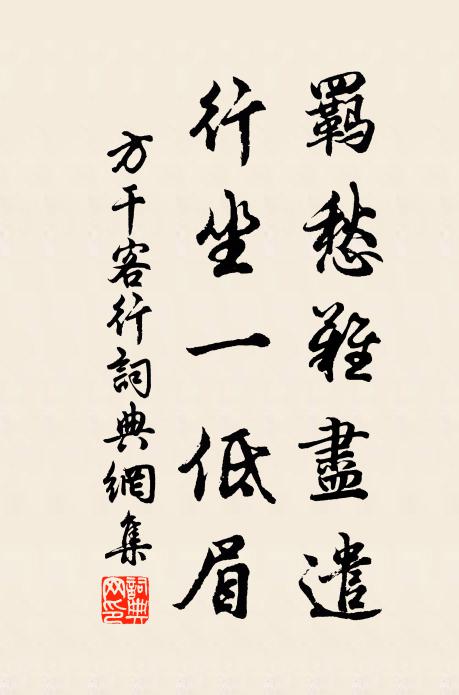 羈愁難盡遣
行坐一低眉
方干客行詞典網集
詞典網印